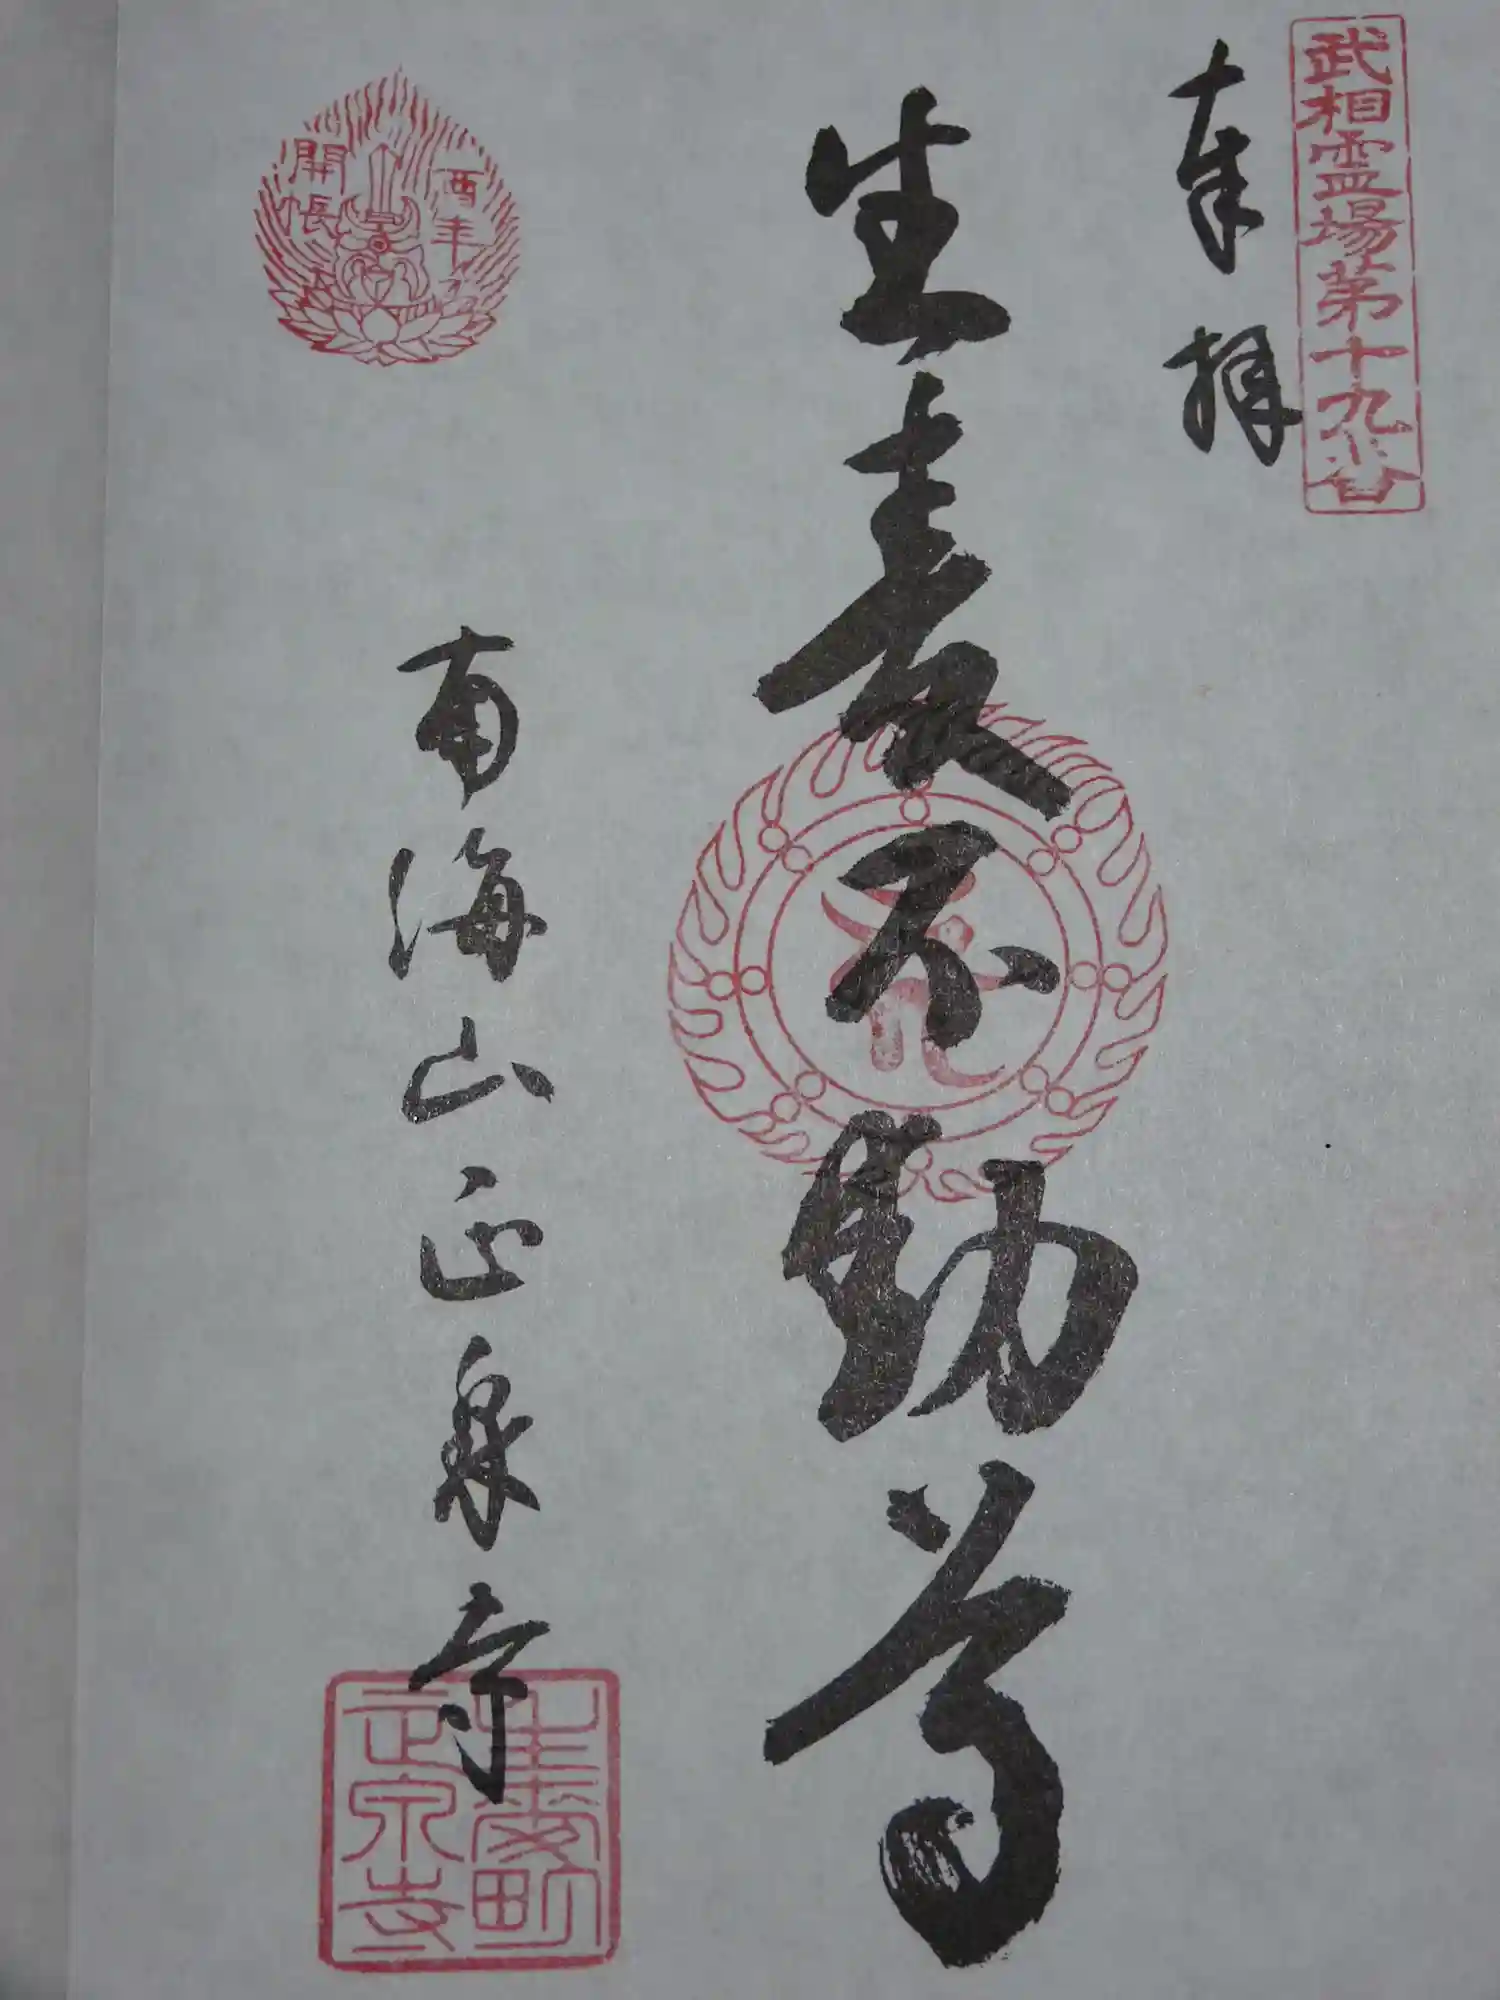 武相霊場第十九番
奉拝
生麦不動尊
南海山正泉寺
酉年
開帳
生麥町
正泉寺